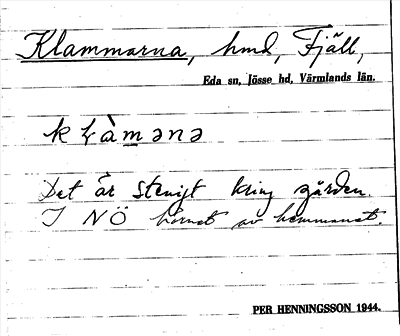 Klammarna, hmd, Fjäll,
Eda sn, Jösse hd, Värmlands län.
kɫàmənə
Det är stenigt kring gården.
I NÖ hörnet av hemmanet.
PER HENNINGSSON 1944.